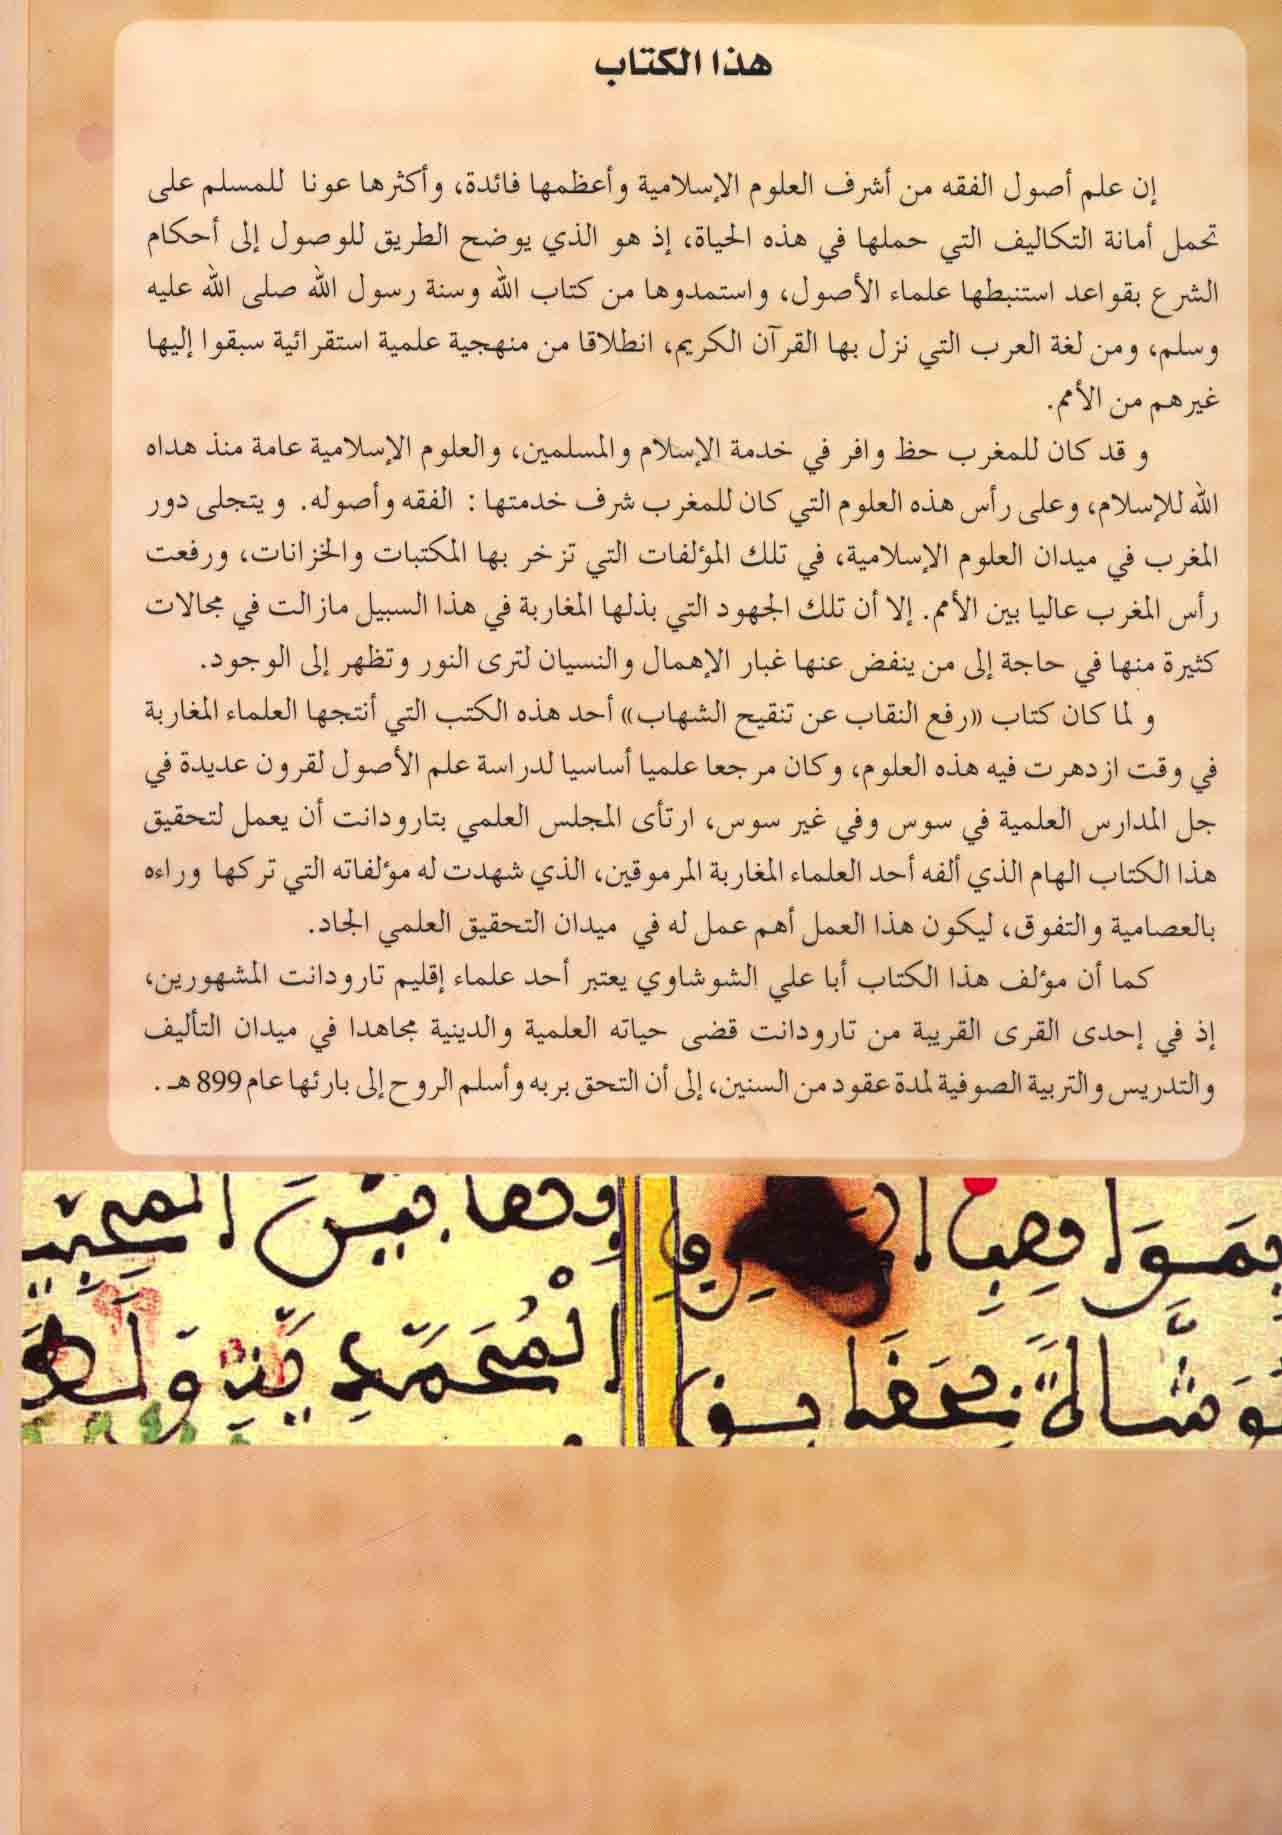 هذا الكتاب
إن علم أصول الفقه من أشرف العلوم الإسلامية وأعظمها فائدة، وأكثرها عونا للمسلم على
تحمل أمانة التكاليف التي حملها في هذه الحياة، إذ هو الذي يوضح الطريق للوصول إلى أحكام
الشرع بقواعد استنبطها علماء الأصول، واستمدوها من كتاب الله وسنة رسول الله صلى الله عليه
وسلم، ومن لغة العرب التي نزل بها القرآن الكريم، انطلاقا من منهجية علمية استقرائية سبقوا إليها
غيرهم من الأمم.
و قد كان للمغرب حظ وافر في خدمة الإسلام والمسلمين، والعلوم الإسلامية عامة منذ هداه
الله للإسلام، وعلى رأس هذه العلوم التي كان للمغرب شرف خدمتها : الفقه وأصوله. ويتجلى دور
المغرب في ميدان العلوم الإسلامية، في تلك المؤلفات التي تزخر بها المكتبات والخزانات، ورفعت
رأس المغرب عاليا بين الأمم. إلا أن تلك الجهود التي بذلها المغاربة في هذا السبيل مازالت في مجالات
كثيرة منها في حاجة إلى من ينفض عنها غبار الإهمال والنسيان لترى النور وتظهر إلى الوجود.
و لما كان كتاب «رفع النقاب عن تنقيح الشهاب» أحد هذه الكتب التي أنتجها العلماء المغاربة
في وقت ازدهرت فيه هذه العلوم، وكان مرجعا علميا أساسيا لدراسة علم الأصول لقرون عديدة في
جل المدارس العلمية في سوس وفي غير سوس، ارتأى المجلس العلمي بتارودانت أن يعمل لتحقيق
هذا الكتاب الهام الذي ألفه أحد العلماء المغاربة المرموقين، الذي شهدت له مؤلفاته التي تركها وراءه
بالعصامية والتفوق، ليكون هذا العمل أهم عمل له في ميدان التحقيق العلمي الجاد.
كما أن مؤلف هذا الكتاب أبا علي الشوشاوي يعتبر أحد علماء إقليم تارودانت المشهورين،
إذ في إحدى القرى القريبة من تارودانت قضى حياته العلمية والدينية مجاهدا في ميدان التأليف
والتدريس والتربية الصوفية لمدة عقود من السنين، إلى أن التحق بربه وأسلم الروح إلى بارئها عام 899 هـ .